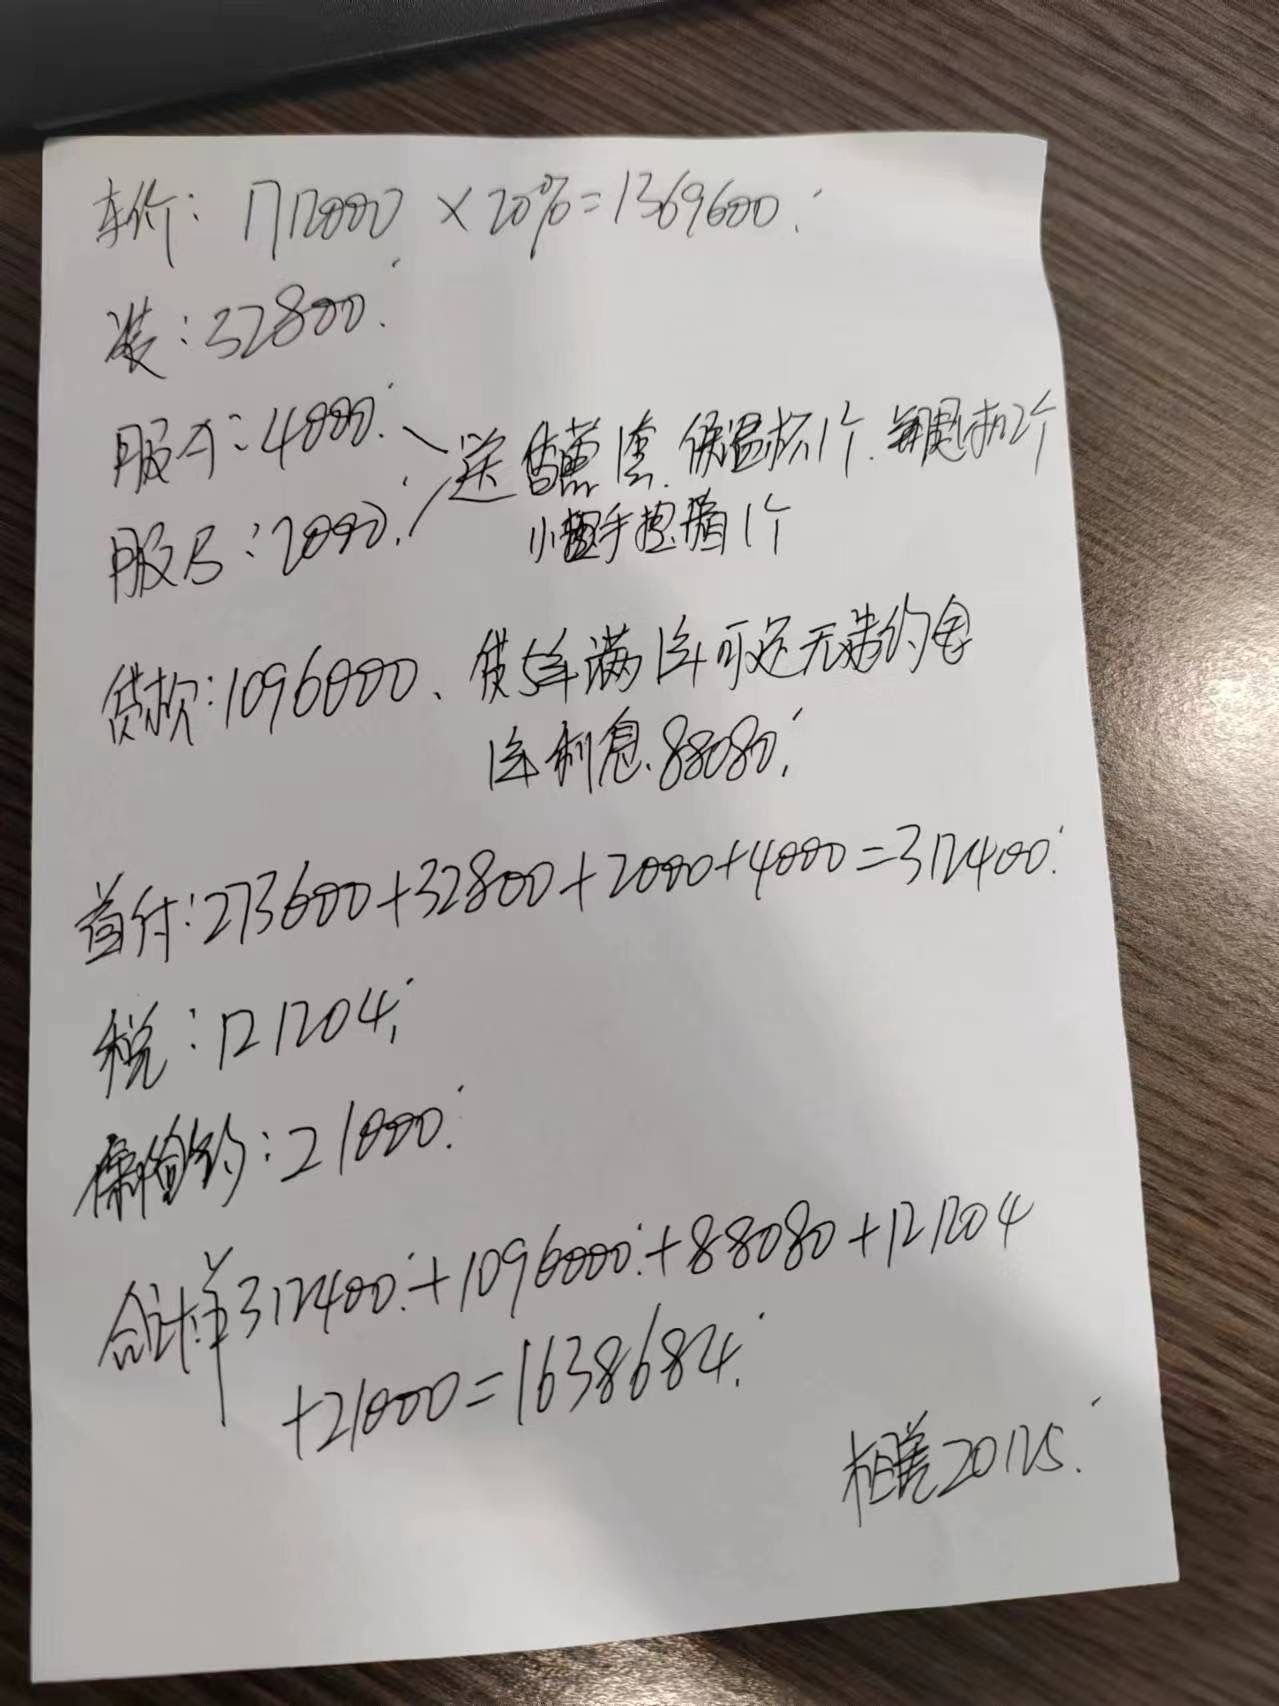 车价: 1712000 × 20% = 1369600.
装: 32800.
服才: 4000. 送香薰1套. 保温杯1个. 钥匙扣2个
服另: 2000. 小手1个
贷款: 1096000、贷5年满1年可还无违约金
1年利息. 88080.
首付: 273600+32800+2000+4000=312400.
税: 121204.
保险约: 21000.
合计 312400.+1096000.+88080+121204
+21000=1638684.
相差20125.